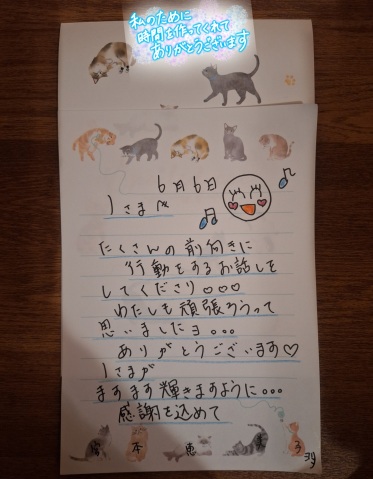 私のために
時間を作ってくれて
ありがとうございます
6月6日
さまへ
たくさんの前向きに
行動をするお話しを
してくださり♡♡♡
わたしも頑張ろうって
思いましたヨ。。。
ありがとうございます♡
さまが
ますます輝きますように。。。
感謝を込めて
本 恵 子